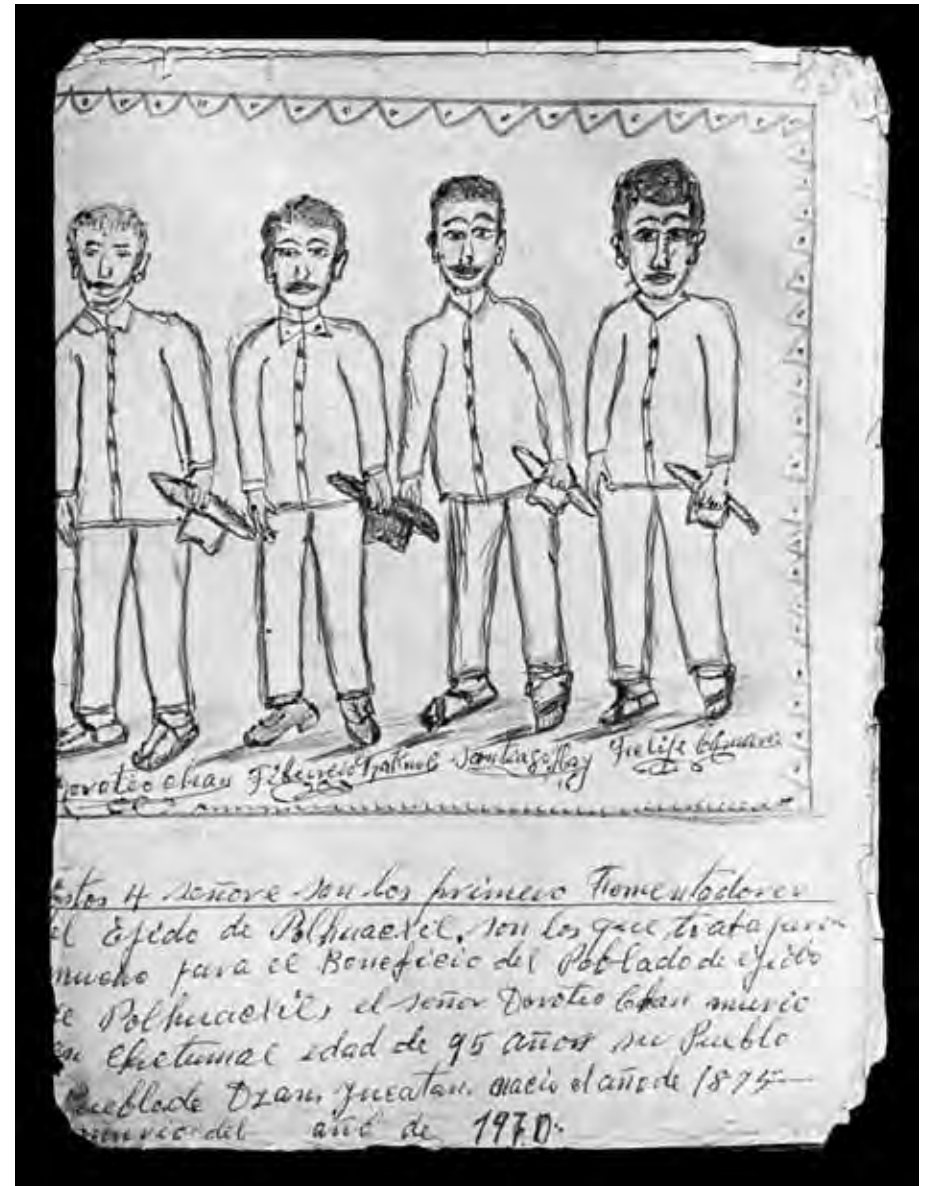 Doroteo chan Santiago Felipe
Estos 4 señore son los primero Fomentadores
el Ejido de Polhuacxil, son los que
mucho para el Beneficio del Poblado de ejido
de Polhuacxil, el señor Doroteo Chan murio
en Chetumal edad de 95 años su Pueblo
Pueblo de Dzan, Yucatan. nacio el año de 1875
murio del año de 1970.